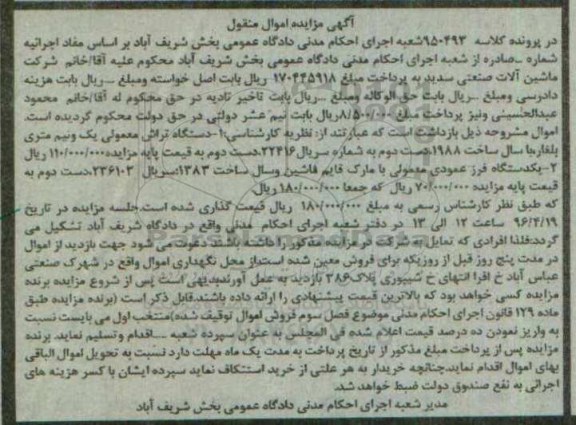 آگهی مزایده اموال منقول
در پرونده کلاسه ۹۵۰۴۹۳شعبه اجرای احکام مدنی دادگاه عمومی بخش شریف آباد بر اساس مفاد اجرائیه
شماره ــصادره از شعبه اجرای احکام مدنی دادگاه عمومی بخش شریف آباد محکوم علیه آقا/خانم شرکت
ماشین آلات صنعتی سدید به پرداخت مبلغ ۱۷۰۴۴۵۹۱۸ ریال بابت اصل خواسته ومبلغ ــریال بابت هزینه
دادرسی ومبلغ ــریال بابت حق الوکاله ومبلغ ــریال بابت تاخیر تادیه در حق محکوم له آقا/خانم محمود
عبدالحسینی ونیز پرداخت مبلغ ۸/۵۰۰/۰۰۰ریال بابت نیم عشر دولتی در حق دولت محکوم گردیده است.
اموال مشروحه ذیل بازداشت است که عبارتند از: نظریه کارشناسی:۱-دستگاه تراش معمولی یک ونیم متری
پلفارجا سال ساخت ۱۹۸۸:دست دوم به شماره سریال۲۲۴۱۶:دست دوم به قیمت پایه مزایده۱۱۰/۰۰۰/۰۰۰ ریال
۲-یکدستگاه فرز عمودی معمولی با مارک قایم فاشین وسال ساخت ۱۳۸۳:سریال ۲۳۶۱۰۳:دست دوم به
قیمت پایه مزایده ۷۰/۰۰۰/۰۰۰ ریال که جمعا ۱۸۰/۰۰۰/۰۰۰ریال
که طبق نظر کارشناس رسمی به مبلغ ۱۸۰/۰۰۰/۰۰۰ ریال قیمت گذاری شده است.جلسه مزایده در تاریخ
۹۶/۴/۱۹ ساعت ۱۲ الی ۱۳ در دفتر شعبه اجرای احکام مدنی واقع در دادگاه شریف آباد تشکیل می
گردد:فلذا افرادی که تمایل به شرکت در مزایده مذکور را داشته باشند دعوت می شود جهت بازدید از اموال
در مدت پنج روز قبل از روزیکه برای فروش معین شده است:از محل نگهداری اموال واقع در شهرک صنعتی
عباس آباد خ افرا انتهای خ شیپوری پلاک۳۸۶ بازدید به عمل آورند:بدیهی است پس از شروع مزایده برنده
مزایده کسی خواهد بود که بالاترین قیمت پیشنهادی را ارائه داده باشند.قابل ذکر است (برنده مزایده طبق
ماده ۱۲۹ قانون اجرای احکام مدنی موضوع فصل سوم فروش اموال توقیف شده)منتخب اول می بایست نسبت
به واریز نمودن ده درصد قیمت اعلام شده فی المجلس به عنوان سپرده شعبه ــاقدام وتسلیم نماید. برنده
مزایده پس از پرداخت مبلغ مذکور از تاریخ پرداخت به مدت یک ماه مهلت دارد نسبت به تحویل اموال الباقی
بهای اموال اقدام نماید.چنانچه خریدار به هر علتی از خرید استنکاف نماید سپرده ایشان با کسر هزینه های
اجرائی به نفع صندوق دولت ضبط خواهد شد.
مدیر شعبه اجرای احکام مدنی دادگاه عمومی بخش شریف آباد